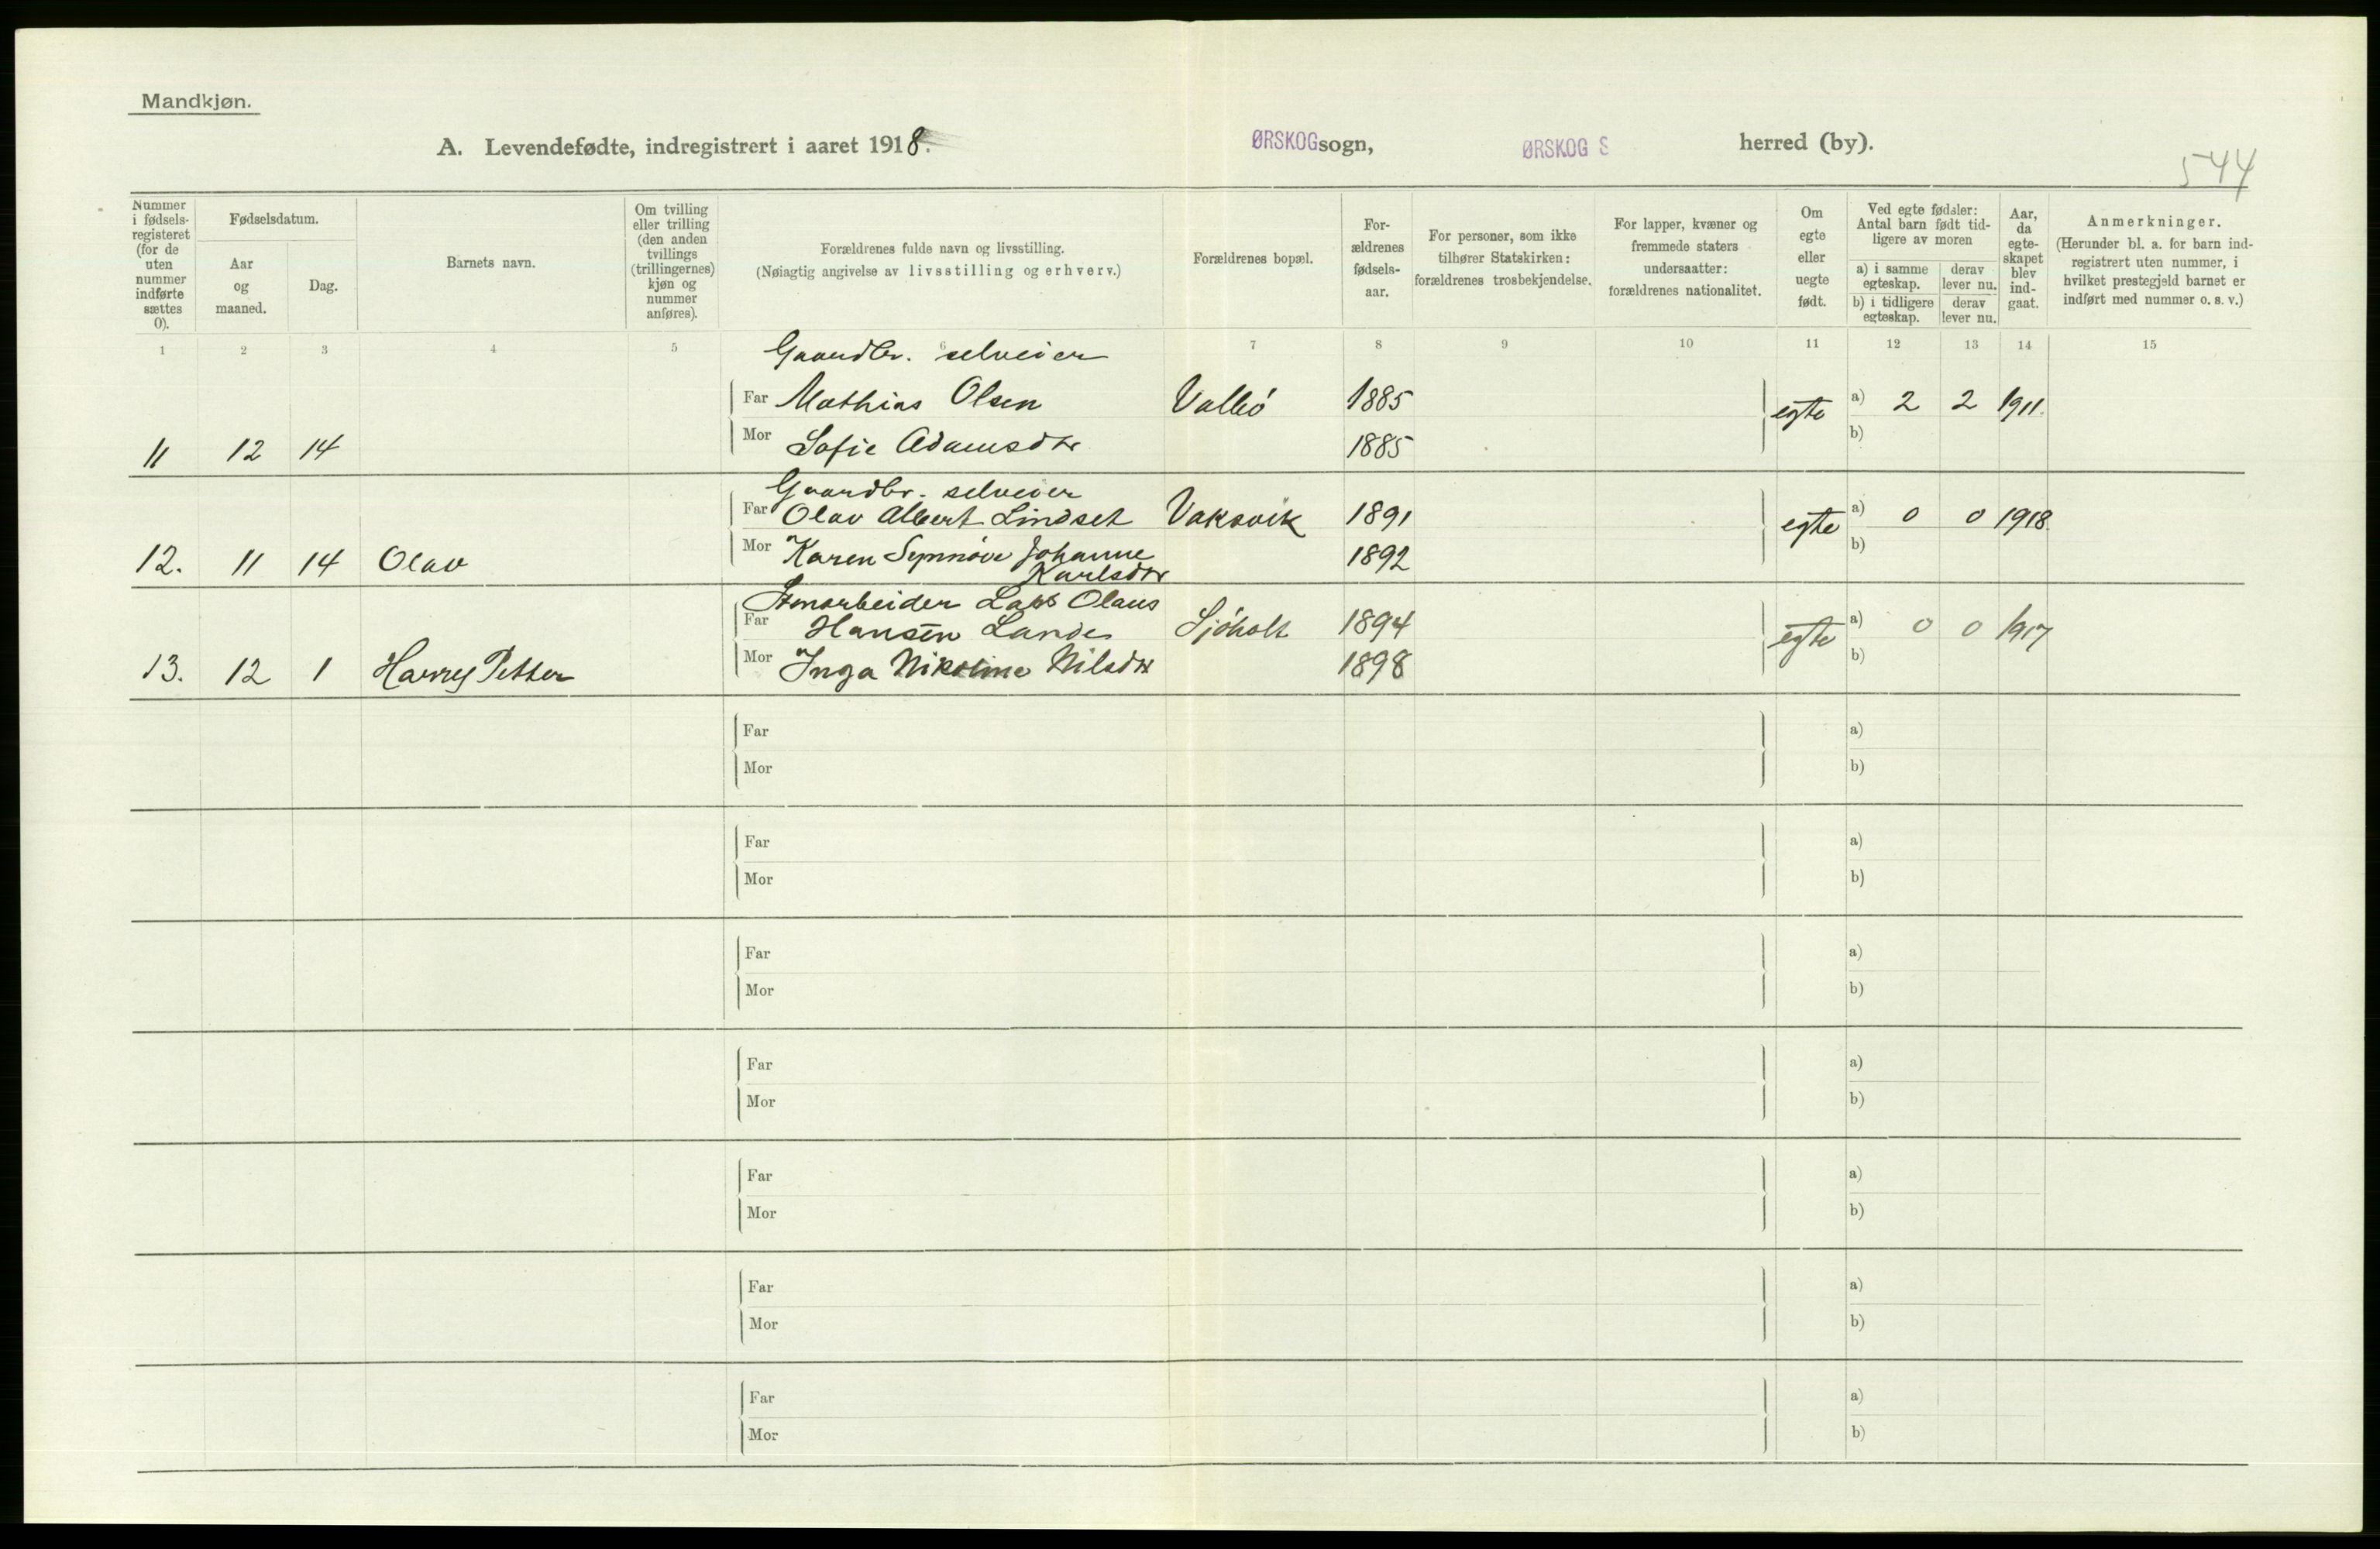 Mandkjøn.
A. Levendefødte, indregistrert i aaret 1918.
ØRSKOG sogn, ØRSKOG S herred (by).
544
Nummer i fødsels-registeret (for de uten nummer indførte sættes 0).
Fødselsdatum.
Aar og maaned.
Dag.
Barnets navn.
Om tvilling eller trilling (den anden tvillings (trillingernes) kjøn og nummer anføres).
Forældrenes fulde navn og livsstilling.
(Nøiagtig angivelse av livsstilling og erhverv.)
Forældrenes bopæl.
For-ældrenes fødsels-aar.
For personer, som ikke tilhører Statskirken: forældrenes trosbekjendelse.
For lapper, kvæner og fremmede staters undersaatter: forældrenes nationalitet.
Om egte eller uegte født.
Ved egte fødsler: Antal barn født tid-ligere av moren
a) i samme egteskap.
derav lever nu.
b) i tidligere egteskap.
derav lever nu.
Aar, da egte-skapet blev ind-gaat.
Anmerkninger.
(Herunder bl. a. for barn ind-registrert uten nummer, i hvilket prestegjeld barnet er indført med nummer o. s. v.)
1 2 3 4 5 6 7 8 9 10 11 12 13 14 15
Gaardbr. selveier
Far Mathias Olsen Vallø 1885 egte a) 2 2 1911.
11 12 14 Mor Sofie Adamsdtr 1885 b)
Gaardbr. selveier
Far Olav Albert Lindset Vaksvik 1891 egte a) 0 0 1918.
12. 11 14 Olav Mor Karen Synnøve Johanne 1892 b)
Karlsdtr
Lars Olaus
Far Hansen Lande Sjøholt 1894 egte a) 0 0 1917
13. 12 1 Harry Petter Mor Inga Nikoline Nilsdtr 1898 b)
Far a)
Mor b)
Far a)
Mor b)
Far a)
Mor b)
Far a)
Mor b)
Far a)
Mor b)
Far a)
Mor b)
Far a)
Mor b)